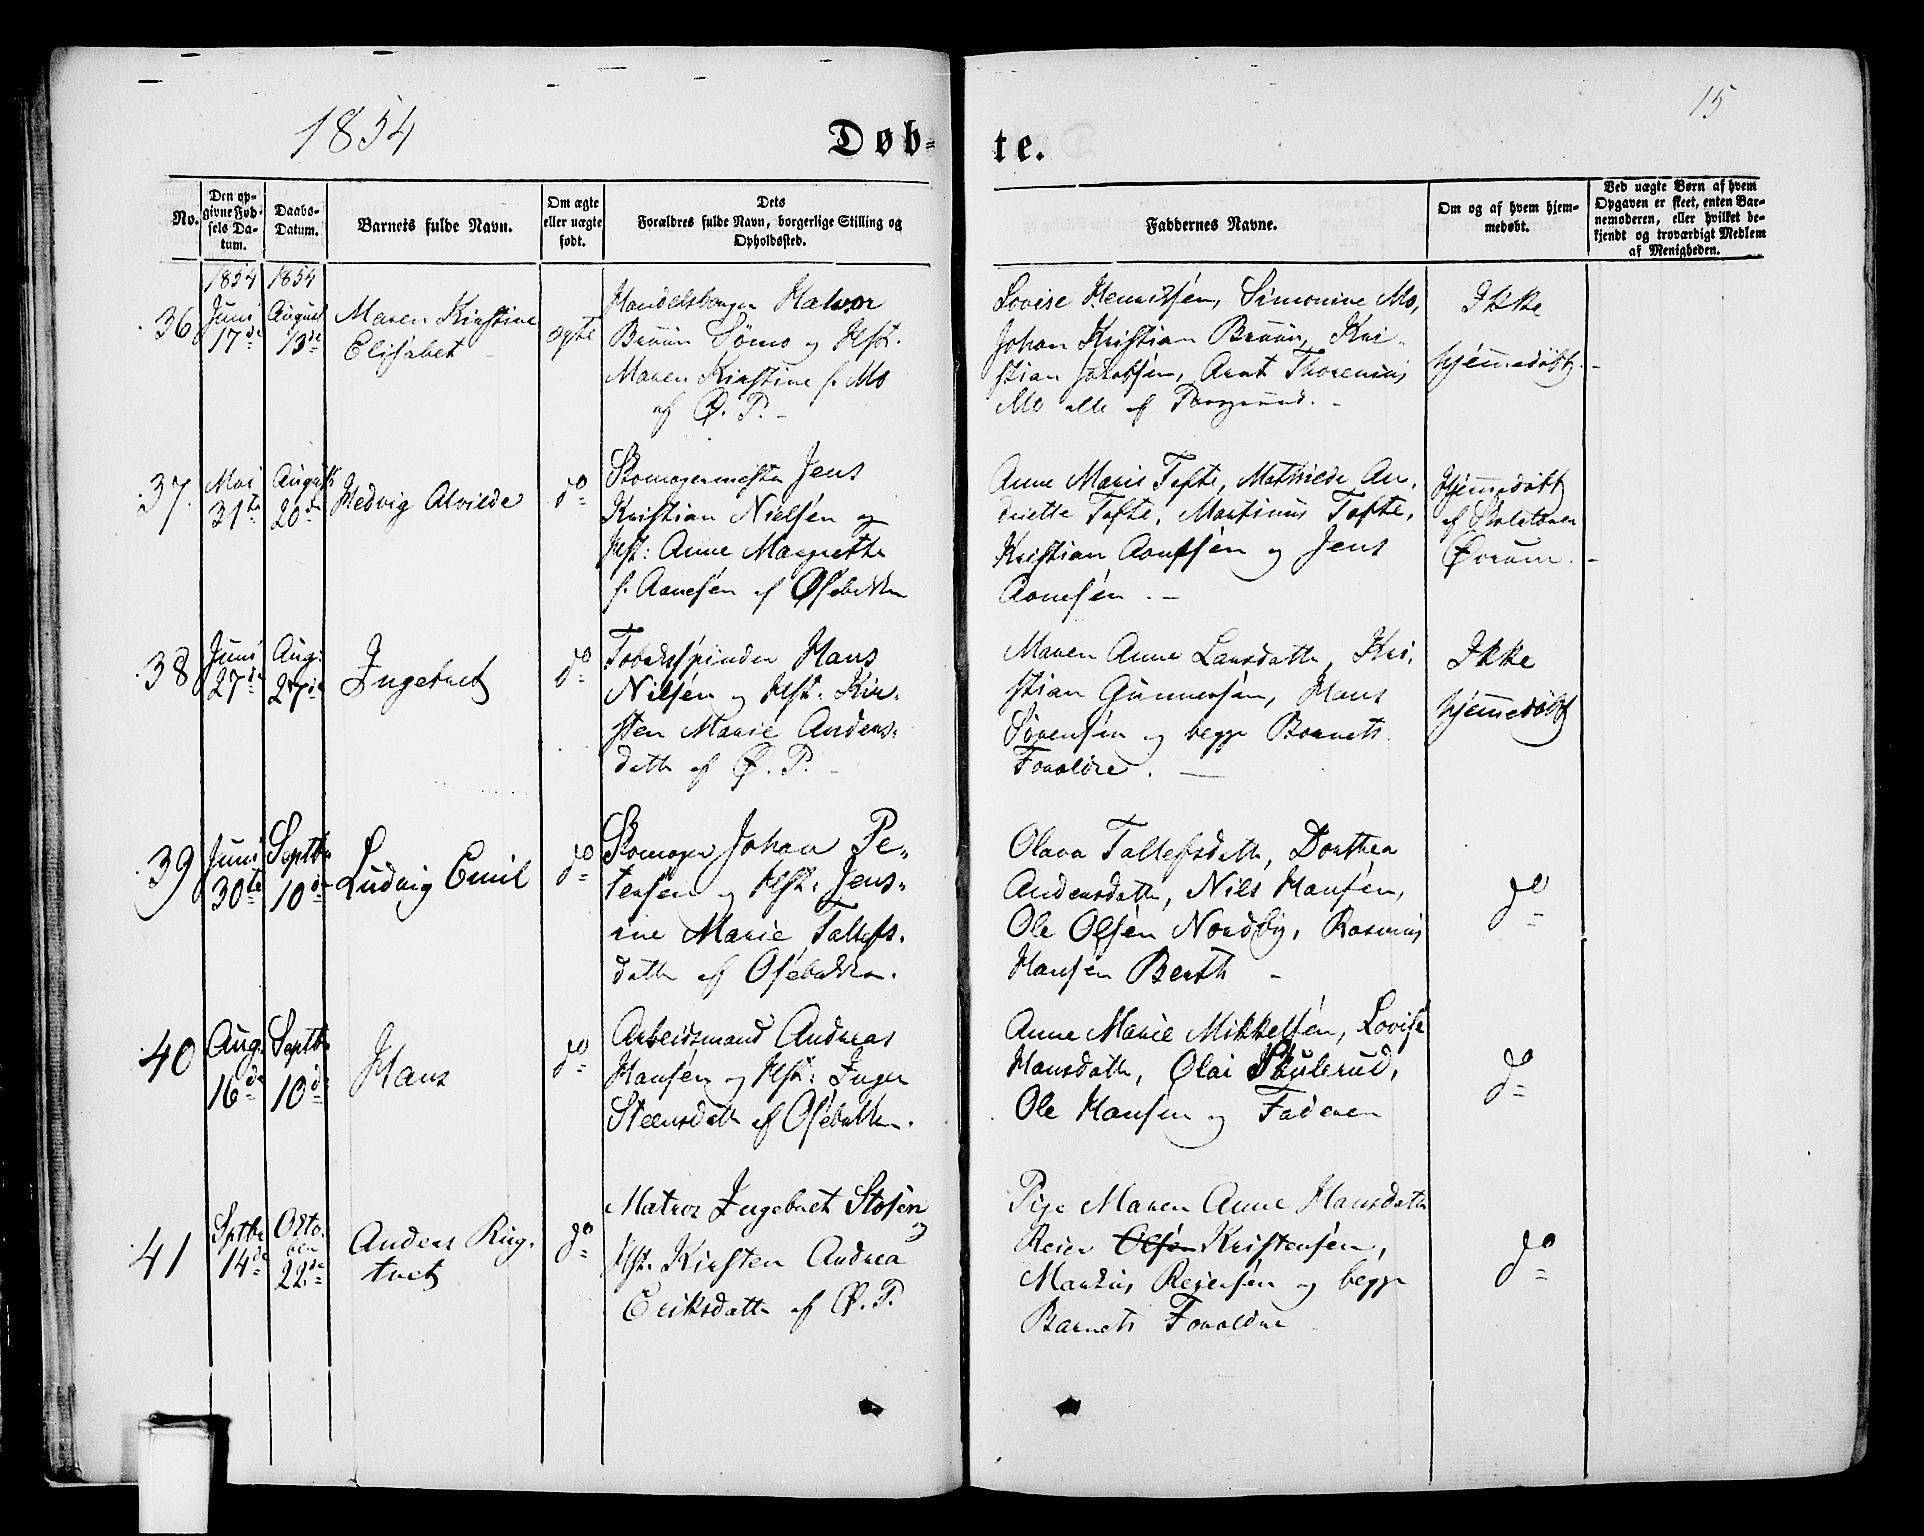 1854
15
Døb-
te.
No.
Den op-
givne Fød-
sels Da-
tum.
Daabs-
Datum.
Barnets fulde Navn.
Om ægte
eller uægte
født.
Dets
Forældres fulde Navn, borgerlige Stilling og
Opholdssted.
Faddernes Navne.
Om og af hvem hjem-
medøbt.
Ved uægte Børn af hvem
Opgaven er skeet, enten Bar-
nemoderen, eller hvilket be-
kjendt og troværdigt Medlem
af Menigheden.
36
1854
Juni
17de
1854
August
13de
Maren Kirstine
Elisabet
ægte
Handelsborger Halvor
Bruun Sømo og Hst.
Maren Kirstine f. Mo
af Ø. P.
Lovise Henriksen, Simonine Mo,
Johan Kristian Bruun, Kri-
stian Jakobsen, Arnt Thorenius
Mo alle af Porsgrund.
Ikke
hjemmedøbt.
37.
Mai
31te
August
20de
Hedvig Alvilde
do
Skomagermester Jens
Kristian Nielsen og
Hst: Anne Margrette
f. Aanesen af Osebakken
Anne Marie Tofte, Mathilde An-
driette Tofte, Martinus Tofte,
Kristian Knutsen og Jens
Aanesén.
Hjemmedøbt
af Skolelærer
Ørrum.
38
Juni
27de
Aug.
27de
Ingebret
do
Tobaksspinder Hans
Nilsén og Hst. Kir-
sten Marie Anders-
datter af Ø. P.
Maren Anne Larsdatter, Kri-
stian Gunnersén, Hans
Sørensén og begge Barnets
Forældre.
Ikke
hjemmedøbt
39
Juni
30te
Septbr
10de
Ludvig Emil
do
Skomager Johan Pe-
tersen og Hst: Jens-
ine Marie Tallefs-
datter af Osebakken.
Olava Tallefsdatter, Dorthea
Andersdatter, Nils Hansén,
Ole Olsén Nordby, Rasmus
Hansen Berth
do
40
Aug.
16de
Septbr
10de
Hans
do
Arbeidsmand Andreas
Hansén og Hst: Inger
Steensdatter af Osebakken.
Anne Marie Mikkelsén, Lovise
Hansdatter, Olai Skulerud,
Ole Hansen og Faderen
do
41
Sptbr
14de
Octo-
ber
22de
Anders Ring-
tvet
do
Matros Ingebret Stosen
og
Hst. Kirsten Andrea
Eriksdatter af Ø. P.
Pige Maren Anne Hansdatter
Reier Olsén Kristensén,
Markus Reiersén og begge
Barnets Forældre
do